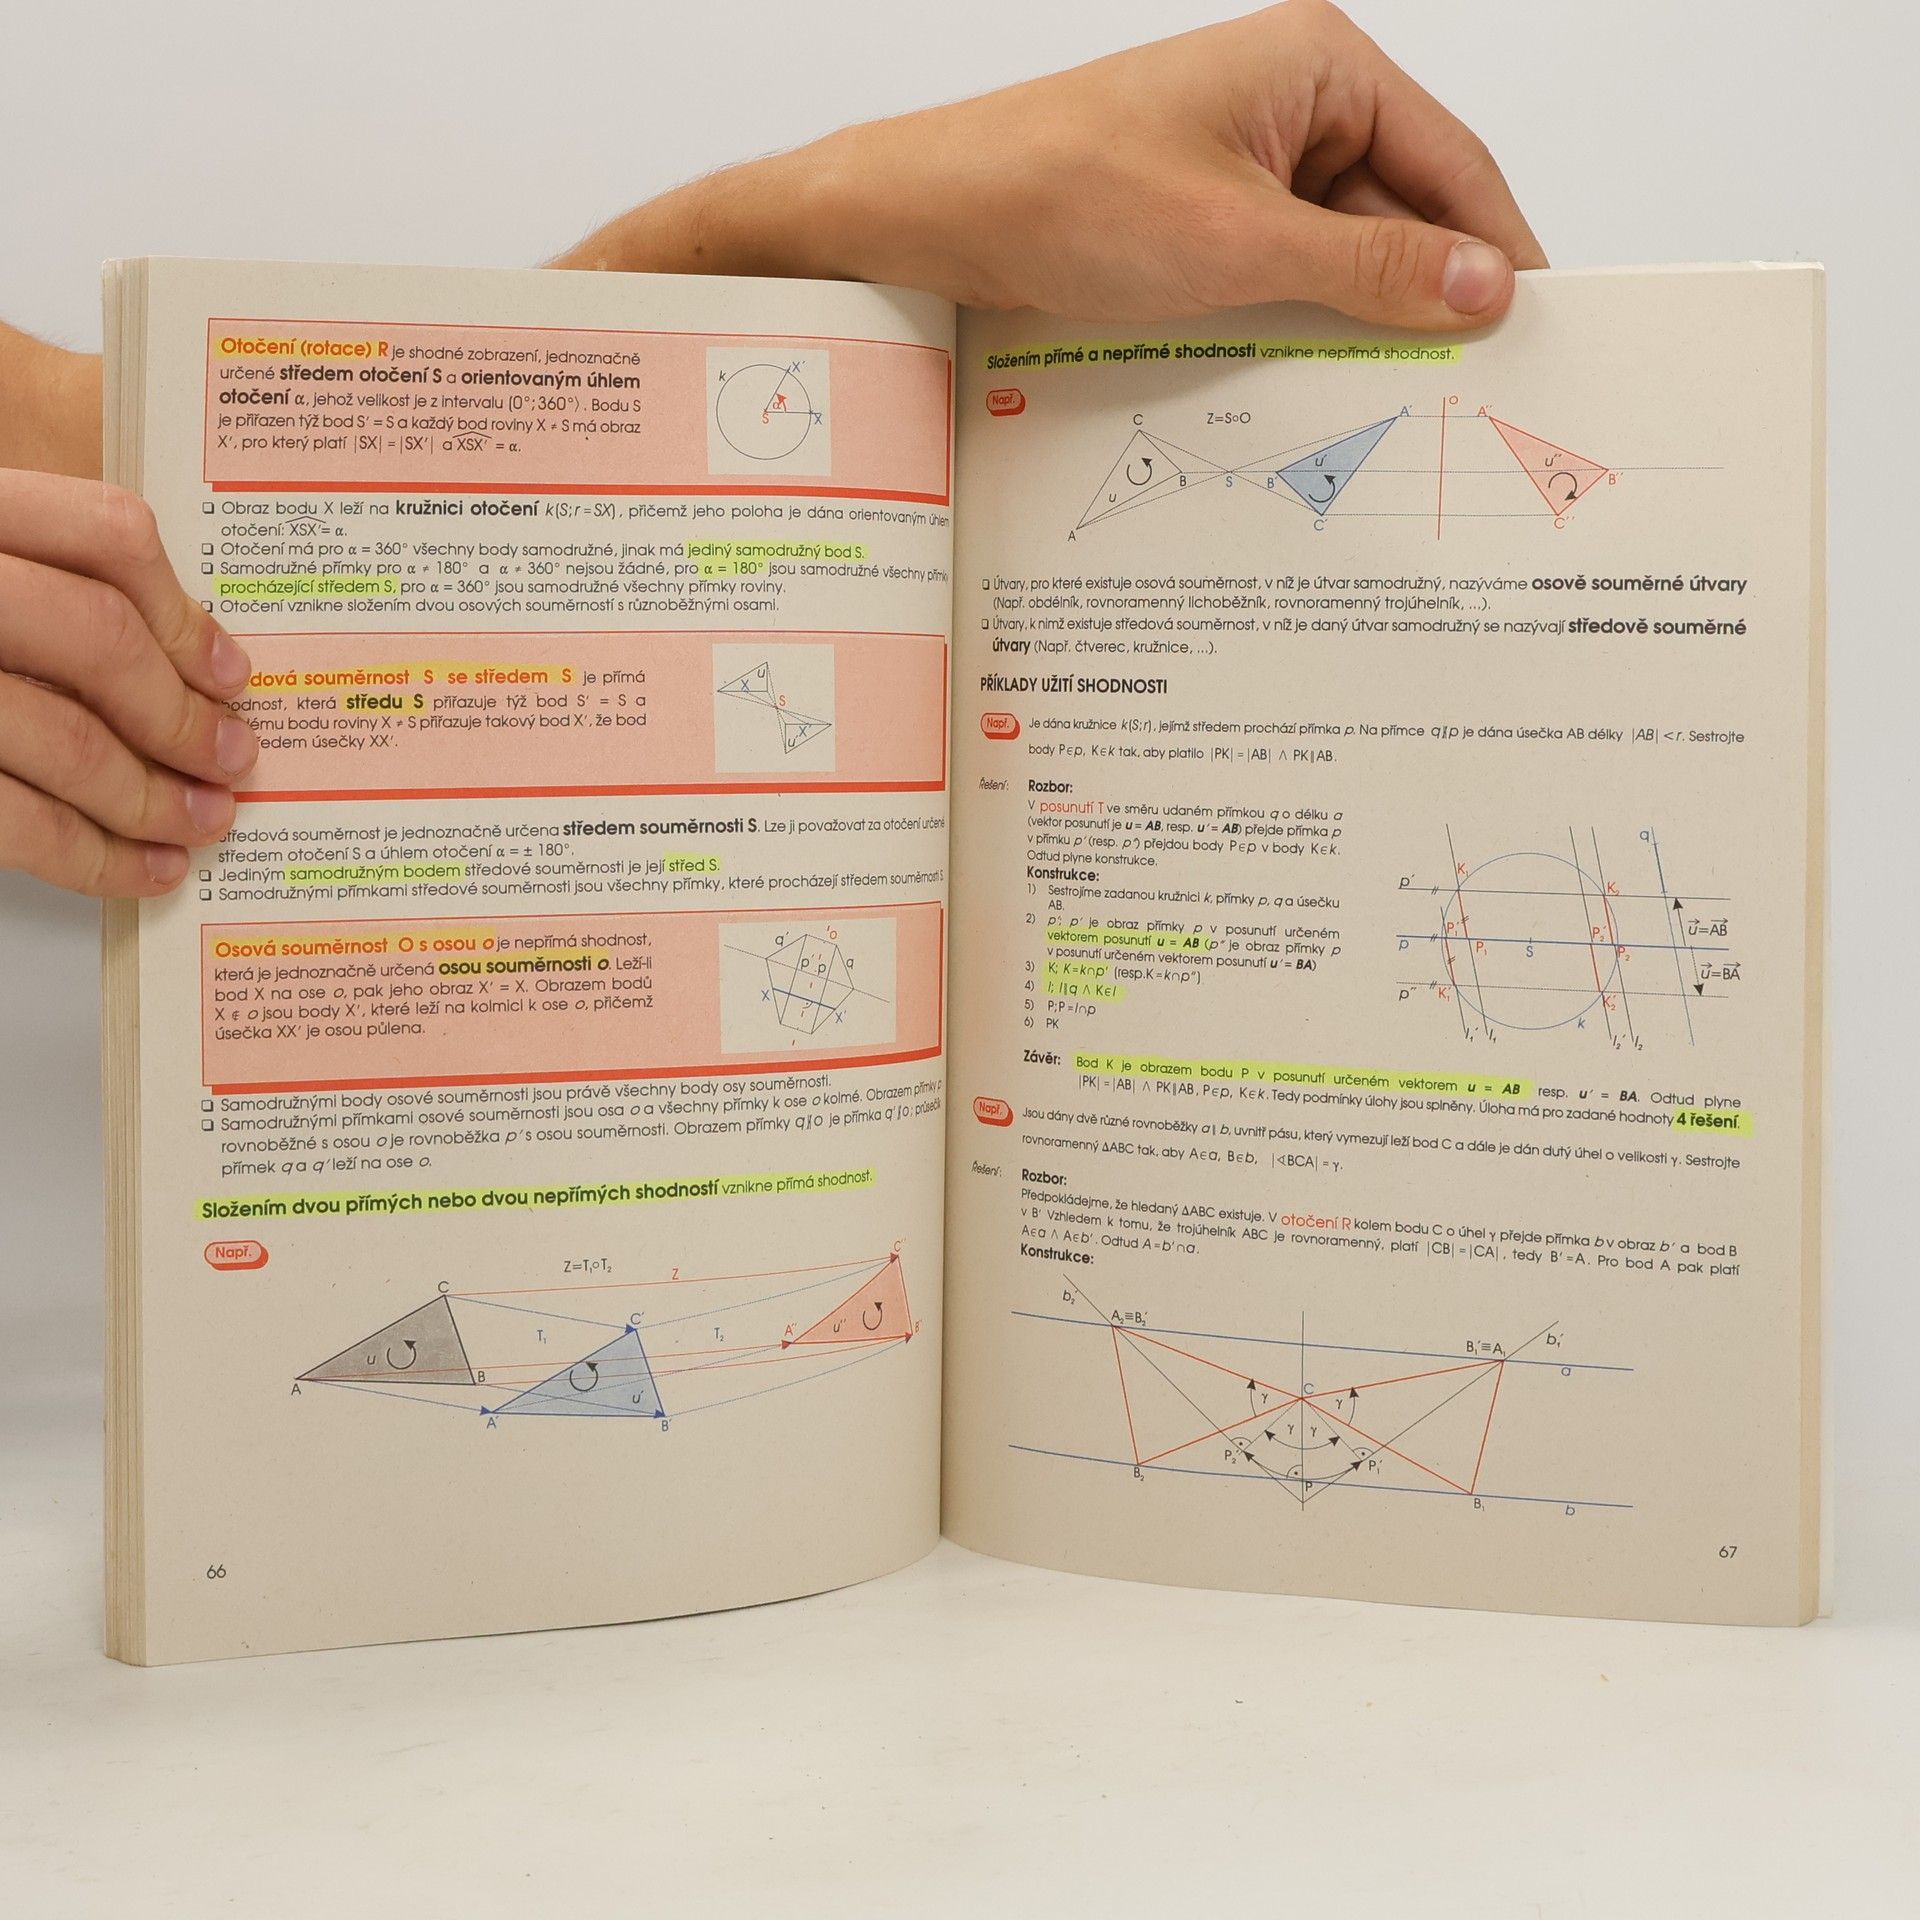 Otočení (rotace) R je shodné zobrazení, jednoznačně
určené středem otočení S a orientovaným úhlem
otočení α, jehož velikost je z intervalu ⟨0°; 360°⟩. Bodu S
je přiřazen týž bod S′ = S a každý bod roviny X ≠ S má obraz
X′, pro který platí |SX| = |SX′| a XSX′ = α.
k
X′
α
S
X
❏ Obraz bodu X leží na kružnici otočení k(S; r = SX), přičemž jeho poloha je dána orientovaným úhlem
otočení: XSX′= α.
❏ Otočení má pro α = 360° všechny body samodružné, jinak má jediný samodružný bod S.
❏ Samodružné přímky pro α ≠ 180° a α ≠ 360° nejsou žádné, pro α = 180° jsou samodružné všechny přímky
procházející středem S, pro α = 360° jsou samodružné všechny přímky roviny.
❏ Otočení vznikne složením dvou osových souměrností s různoběžnými osami.
dová souměrnost S se středem S je přímá
hodnost, která středu S přiřazuje týž bod S′ = S a
ému bodu roviny X ≠ S přiřazuje takový bod X′, že bod
ředem úsečky XX′.
u
X
S
X′
u′
středová souměrnost je jednoznačně určena středem souměrnosti S. Lze ji považovat za otočení určené
středem otočení S a úhlem otočení α = ± 180°.
❏ Jediným samodružným bodem středové souměrnosti je její střed S.
❏ Samodružnými přímkami středové souměrnosti jsou všechny přímky, které procházejí středem souměrnosti S.
Osová souměrnost O s osou o je nepřímá shodnost,
která je jednoznačně určená osou souměrnosti o. Leží-li
bod X na ose o, pak jeho obraz X′ = X. Obrazem bodů
X ∉ o jsou body X′, které leží na kolmici k ose o, přičemž
úsečka XX′ je osou půlena.
q′
o
p′
p
q
X
X′
❏ Samodružnými body osové souměrnosti jsou právě všechny body osy souměrnosti.
❏ Samodružnými přímkami osové souměrnosti jsou osa o a všechny přímky k ose o kolmé. Obrazem přímky p
rovnoběžné s osou o je rovnoběžka p′ s osou souměrnosti. Obrazem přímky q∦o je přímka q′∦o; průsečík
přímek q a q′ leží na ose o.
Složením dvou přímých nebo dvou nepřímých shodností vznikne přímá shodnost.
Např.
Z=T₁∘T₂
Z
C
C′
C′′
T₁
T₂
A′′
u′′
B′′
u
A
B
u′
A′
B′
66
Složením přímé a nepřímé shodnosti vznikne nepřímá shodnost.
Např.
Z=S∘O
C
A′
O
A′′
u
B
S
B′
u′
u′′
B′′
A
C′
C′′
❏ Útvary, pro které existuje osová souměrnost, v níž je útvar samodružný, nazýváme osově souměrné útvary
(Např. obdélník, rovnoramenný lichoběžník, rovnoramenný trojúhelník, ...).
❏ Útvary, k nimž existuje středová souměrnost, v níž je daný útvar samodružný se nazývají středově souměrné
útvary (Např. čtverec, kružnice, ...).
PŘÍKLADY UŽITÍ SHODNOSTI
Např.
Je dána kružnice k(S; r), jejímž středem prochází přímka p. Na přímce q∦p je dána úsečka AB délky |AB| < r. Sestrojte
body P∈p, K∈k tak, aby platilo |PK| = |AB| ∧ PK∥AB.
Řešení:
Rozbor:
V posunutí T ve směru udaném přímkou q o délku a
(vektor posunutí je u = AB, resp. u′ = AB) přejde přímka p
v přímku p′ (resp. p″) přejdou body P∈p v body K∈k.
Odtud plyne konstrukce.
Konstrukce:
1) Sestrojíme zadanou kružnici k, přímky p, q a úsečku
AB.
2) p′; p′ je obraz přímky p v posunutí určeném
vektorem posunutí u = AB (p″ je obraz přímky p
v posunutí určeném vektorem posunutí u′ = BA)
3) K; K=k∩p′ (resp.K=k∩p″)
4) l; l∥q ∧ K∈l
5) P; P=l∩p
6) PK
q
K₁
K₂
p′
P₁′
P₂′
u=AB
p
P₁
S
P₂
u=BA
p″
K₁′
K₂′
k
l₁′
l₁
l₂′
l₂
Závěr:
Bod K je obrazem bodu P v posunutí určeném vektorem u = AB resp. u′ = BA. Odtud plyne
|PK| = |AB| ∧ PK∥AB, P∈p, K∈k. Tedy podmínky úlohy jsou splněny. Úloha má pro zadané hodnoty 4 řešení.
Např.
Jsou dány dvě různé rovnoběžky a∥b, uvnitř pásu, který vymezují leží bod C a dále je dán dutý úhel o velikosti γ. Sestrojte
rovnoramenný ΔABC tak, aby A∈a, B∈b, |∢BCA| = γ.
Řešení:
Rozbor:
Předpokládejme, že hledaný ΔABC existuje. V otočení R kolem bodu C o úhel γ přejde přímka b v obraz b′ a bod B
v B′ Vzhledem k tomu, že trojúhelník ABC je rovnoramenný, platí |CB| = |CA|, tedy B′ = A. Pro bod A pak platí
A∈a ∧ A∈b′. Odtud A=b′∩a.
Konstrukce:
b₂′
A₂≡B₂′
B₁′≡A₁
b₁′
a
C
γ
γ
γ γ
P₂′
P₁′
B₂
P
B₁
b
67